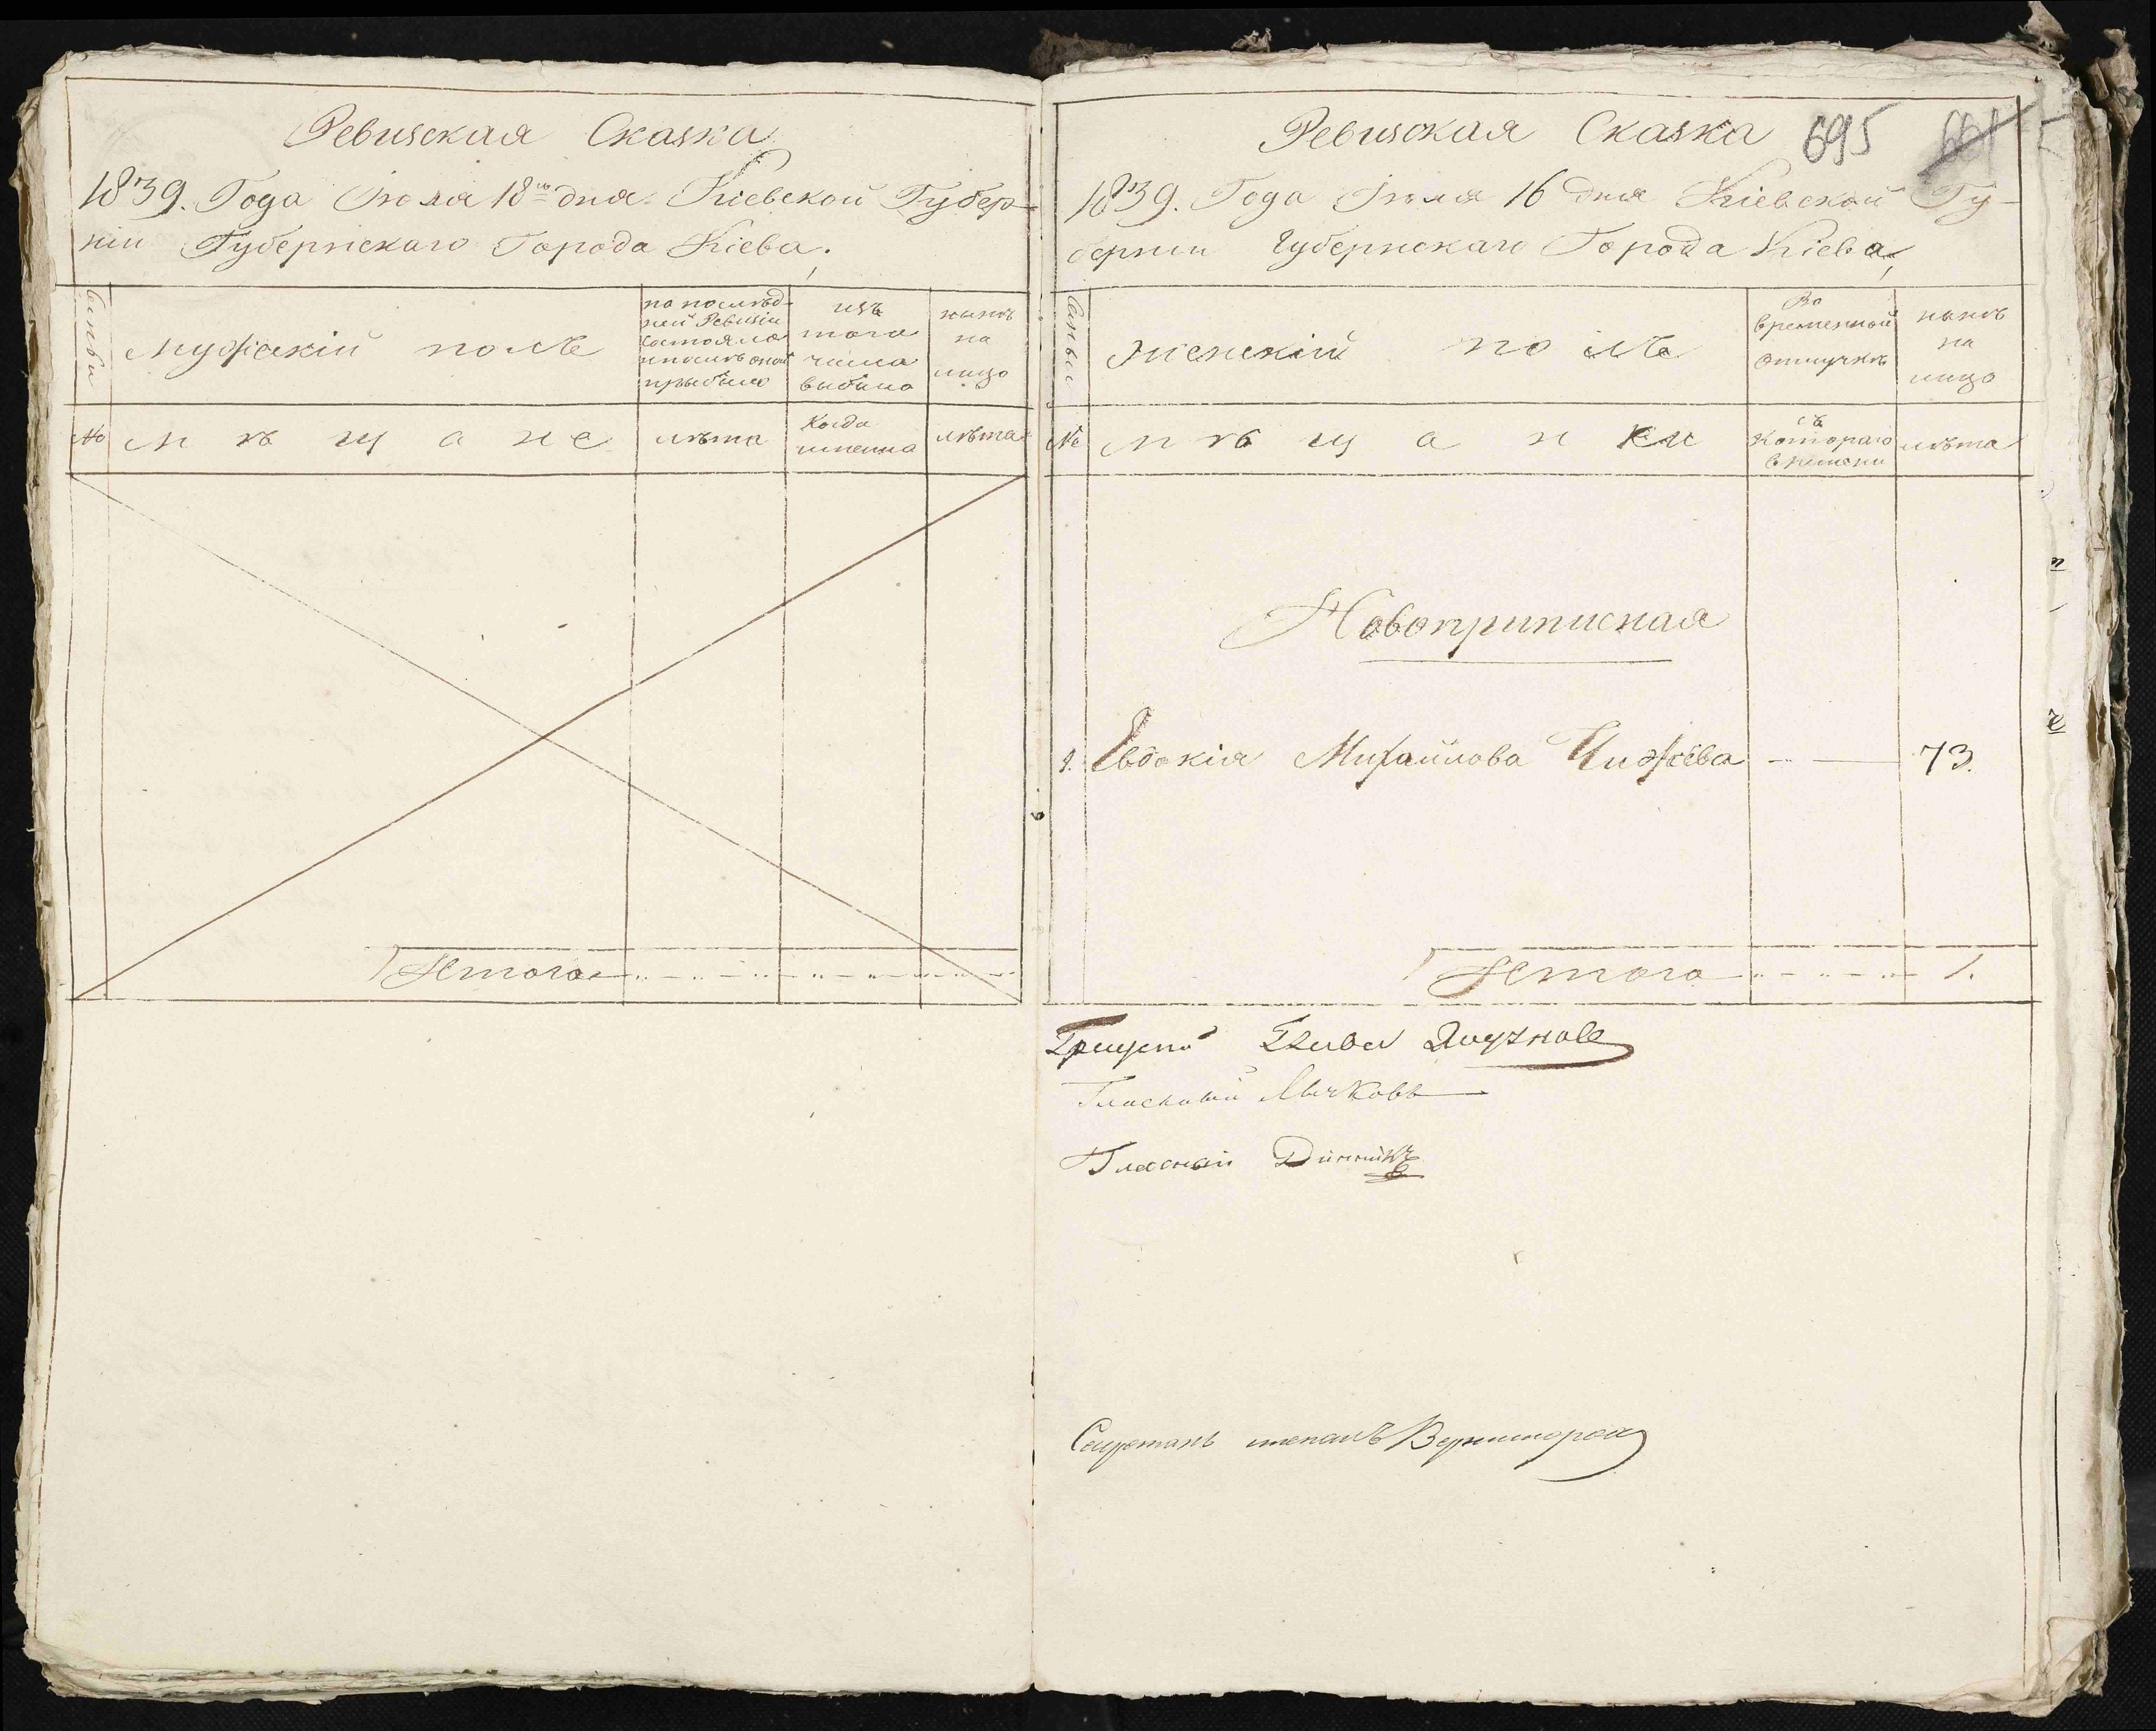 Ревизская Сказка
1839. Года Июля 18го дня Кіевской Губер-
ніи Губернскаго Города Кіева.
Семьи
Мужескій полъ
по послѣд-
ней Ревизіи
состояло
и послѣ оной
прибыло
изъ
того
числа
выбыло
нынѣ
на
лицо
№
мѣщане
лѣта
Когда
именно
лѣта
Итого
Ревизская Сказка
695
661
1839. Года Іюля 16 дня Кіевской Гу-
берніи Губернскаго Города Кіева,
Семьи
Женскій полъ
Во
временной
отлучкѣ
нынѣ
на
лицо
№
мѣщанки
съ
котораго
времени
лѣта
Новоприписная
1. Евдокія Михайлова Чижева - — 73.
Итого 1.
Гласный Лычковъ
Гласный
Секретарь